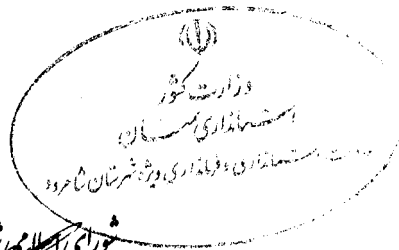 وزارت کشور
استانداری سمنان
معاونت استانداری و فرمانداری ویژه شهرستان شاهرود
شورای اسلامی